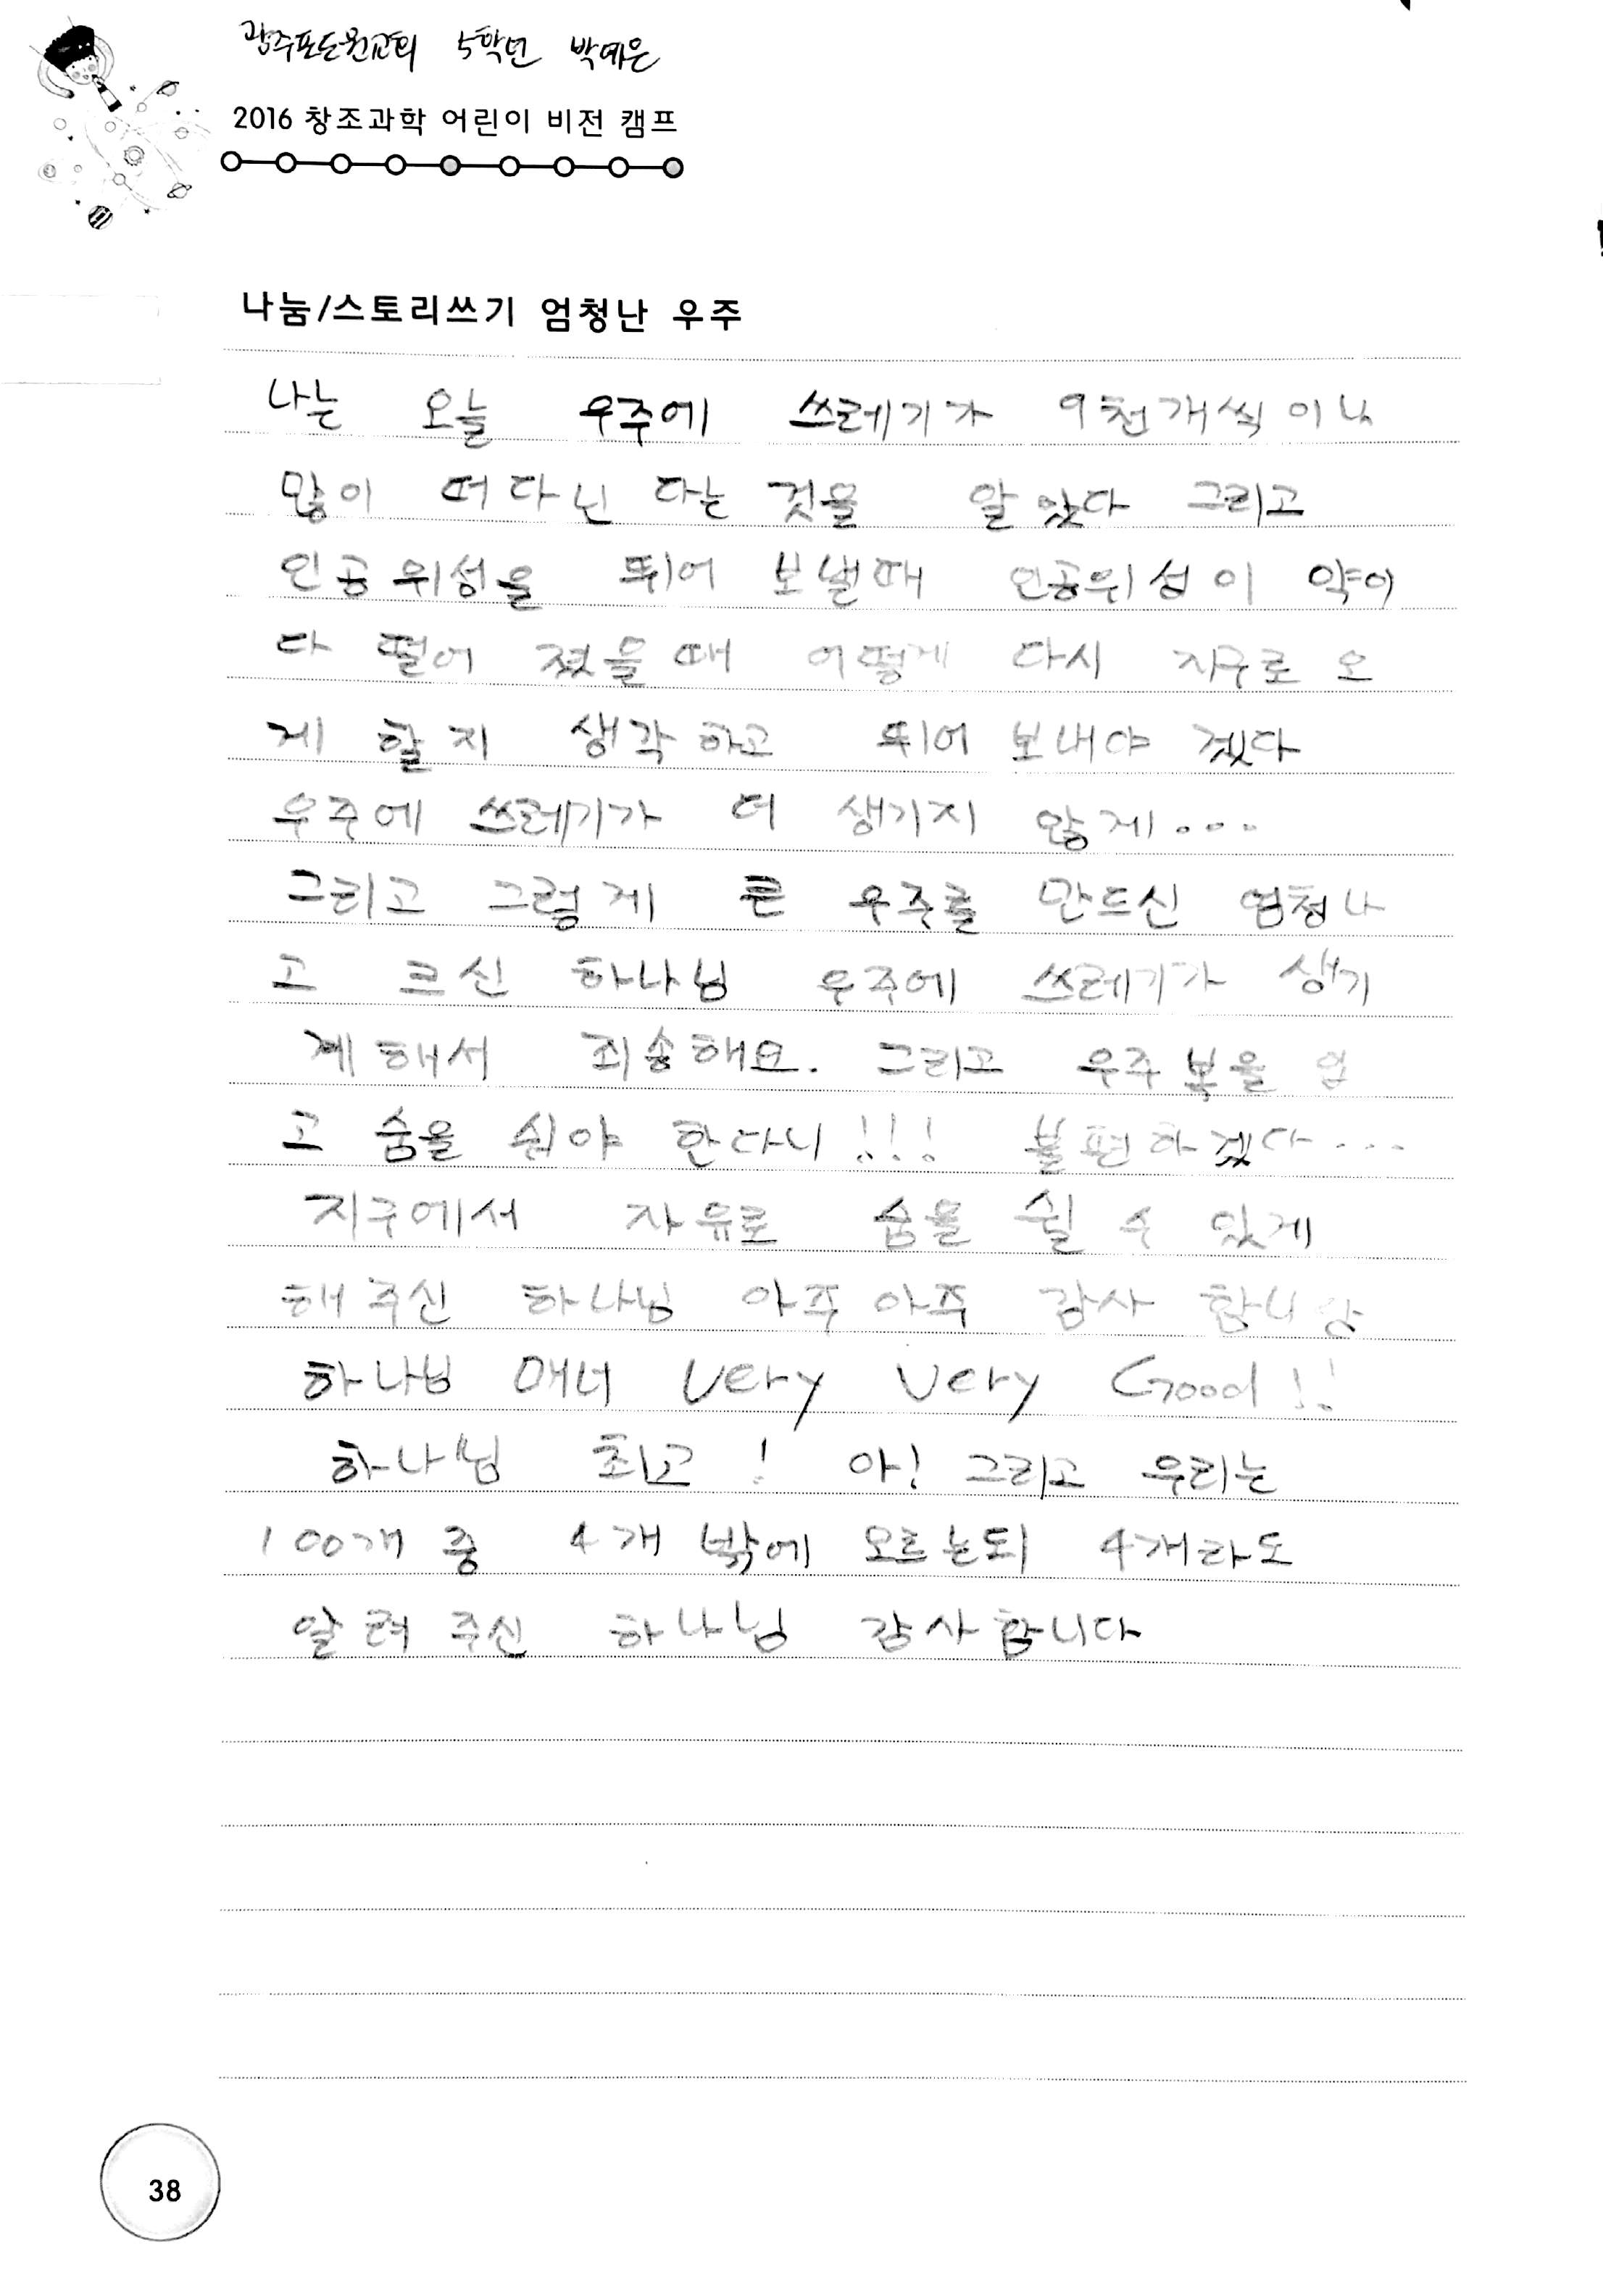 광주포도원교회 5학년 박예은
2016 창조과학 어린이 비전 캠프
나눔/스토리쓰기 엄청난 우주
나는 오늘 우주에 쓰레기가 9천개씩 이나
많이 떠다닌 다는 것을 알았다 그리고
인공위성을 뛰어 보낼때 인공위성이 약이
다 떨어 졌을때 어떻게 다시 지구로 오
게 할지 생각하고 뛰어 보내야 겠다
우주에 쓰레기가 더 생기지 않게...
그리고 그렇게 큰 우주를 만드신 엄청나
고 크신 하나님 우주에 쓰레기가 생기
게해서 죄송해요. 그리고 우주복을 입
고 숨을 쉬야 한다니!!! 불편하겠다...
지구에서 자유로 숨을 쉴 수 있게
해주신 하나님 아주아주 감사 합니당
하나님 매너 very very Good!!
하나님 최고! 아! 그리고 우리는
100개 중 4개 밖에 모르는되 4개라도
알려주신 하나님 감사합니다
38